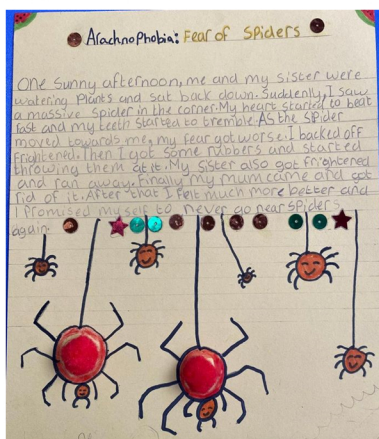 Arachnophobia: Fear of Spiders
One sunny afternoon, me and my sister were
watering Plants and sat back down. Suddenly, I saw
a massive spider in the corner. My heart started to beat
fast and my teeth started to tremble. As the spider
moved towards me, my fear got worse. I backed off
frightened. Then I got some rubbers and started
throwing them at it. My sister also got frightened
and ran away. Finally my mum came and got
rid of it. After that I felt much more better and
I Promised myself to never go near spiders
again.